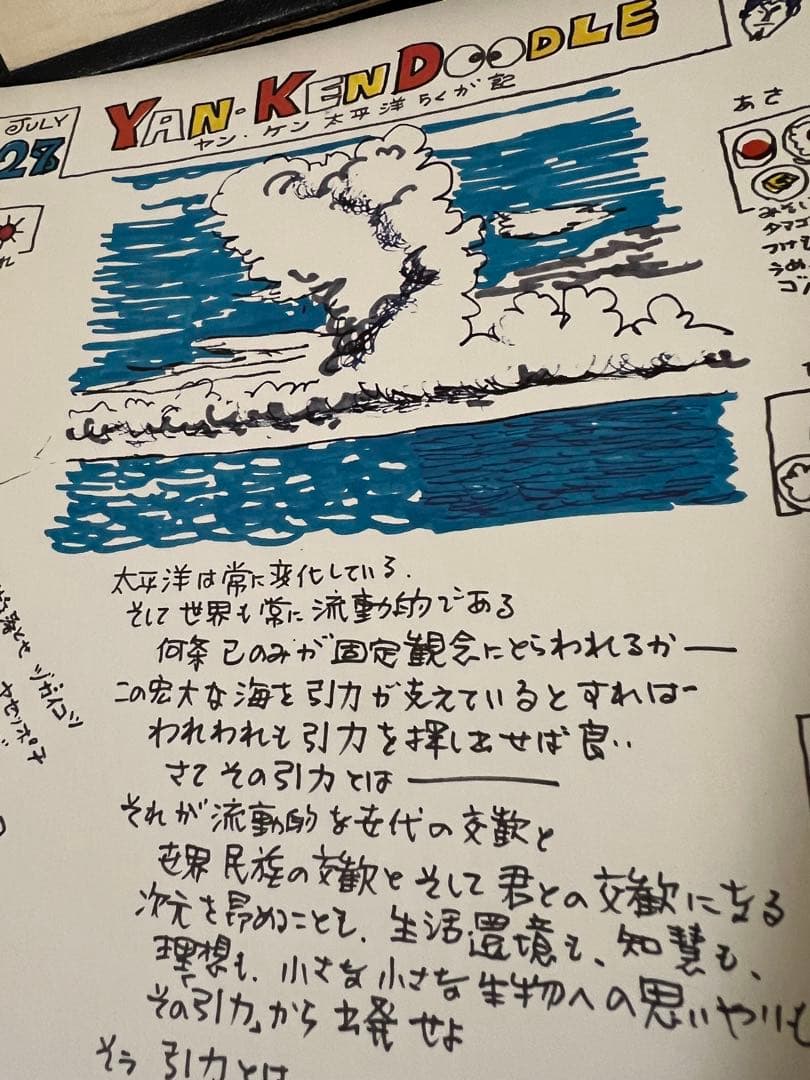 JULY
28
YAN・KEN DOODLE
ヤン・ケン 太平洋 らくが記
あさ
タマゴ
つけ
うめ
ゴ
太平洋は常に変化している.
そして世界も常に流動的である
何条己のみが固定観念にとらわれるか――
この宏大な海を引力が支えているとすれば
われわれも引力を探し出せば良い
さて その引力とは――――
それが流動的な世代の交歓と
世界民族の交歓と そして 君との交歓になる
次元を昂めることも、生活環境も、知慧も、
理想も、小さな小さな生物への思いやりも
その引力」から出発せよ
そう 引力とは